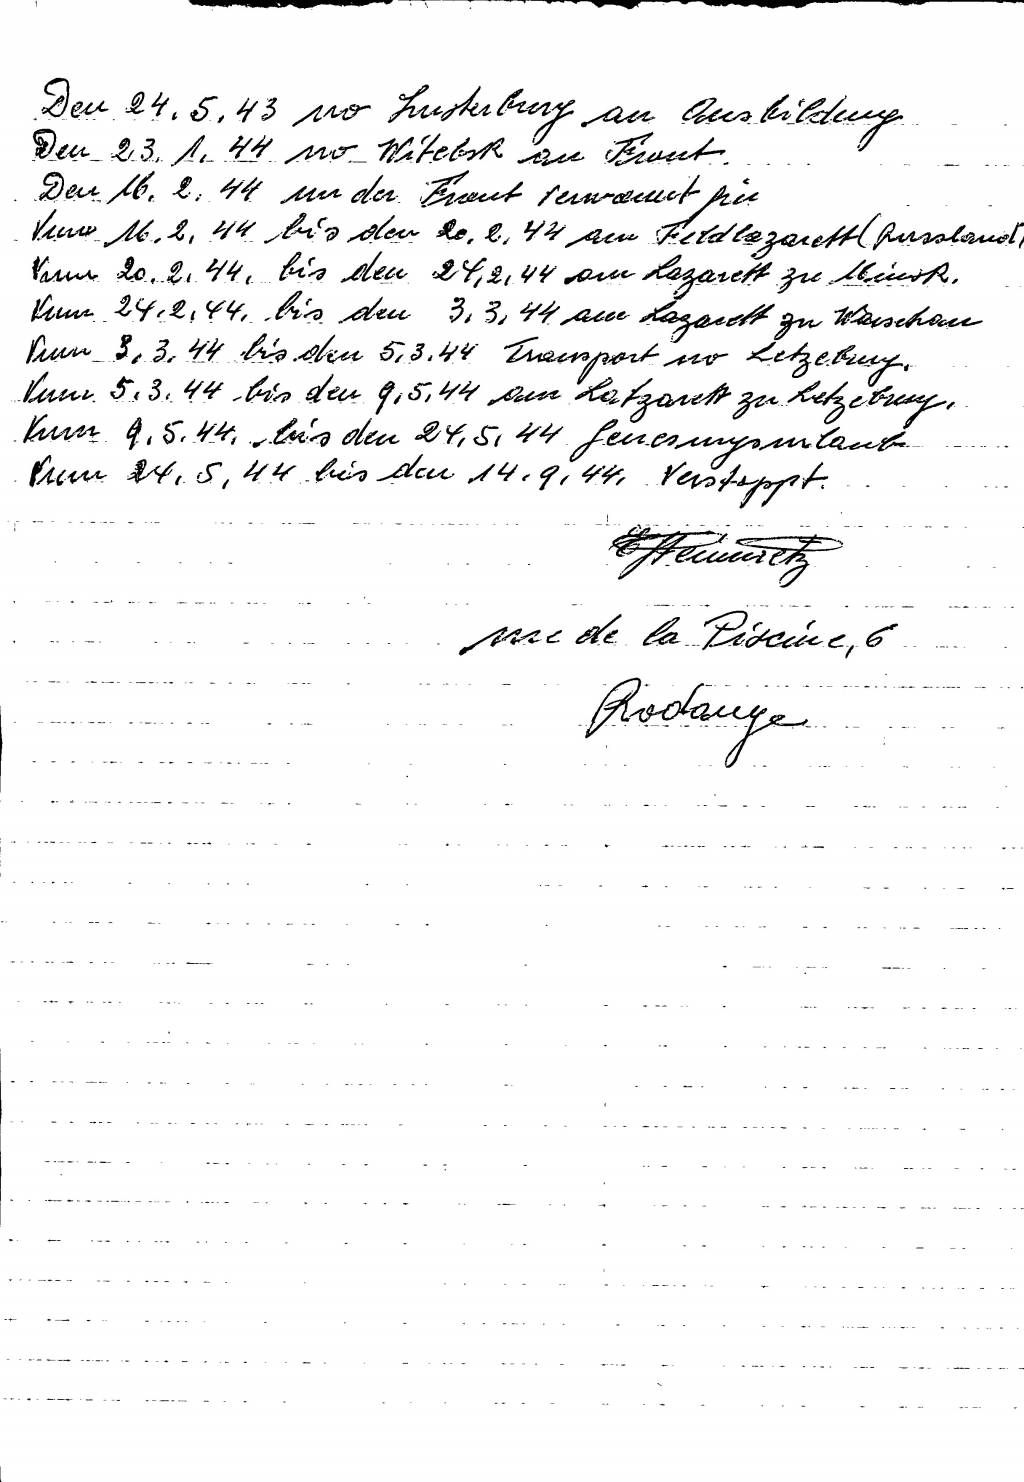 Den 24.5.43 no Insterburg an Ausbildung
Den 23.1.44 no Witebsk an Front.
Den 16.2.44 un der Front verwonnt gin
Vum 16.2.44 bis den 20.2.44 am Feldlazarett (Russland)
Vum 20.2.44. bis den 24.2.44 am Lazarett zu Minsk.
Vum 24.2.44. bis den 3.3.44 am Lazarett zu Warschau
Vum 3.3.44 bis den 5.3.44 Transport no Letzeburg.
Vum 5.3.44 bis den 9.5.44 am Latzarett zu Letzeburg.
Vum 9.5.44. bis den 24.5.44 Genesungsurlaub
Vum 24.5.44 bis den 14.9.44. Verstoppt.
rue de la Piscine, 6
Rodange